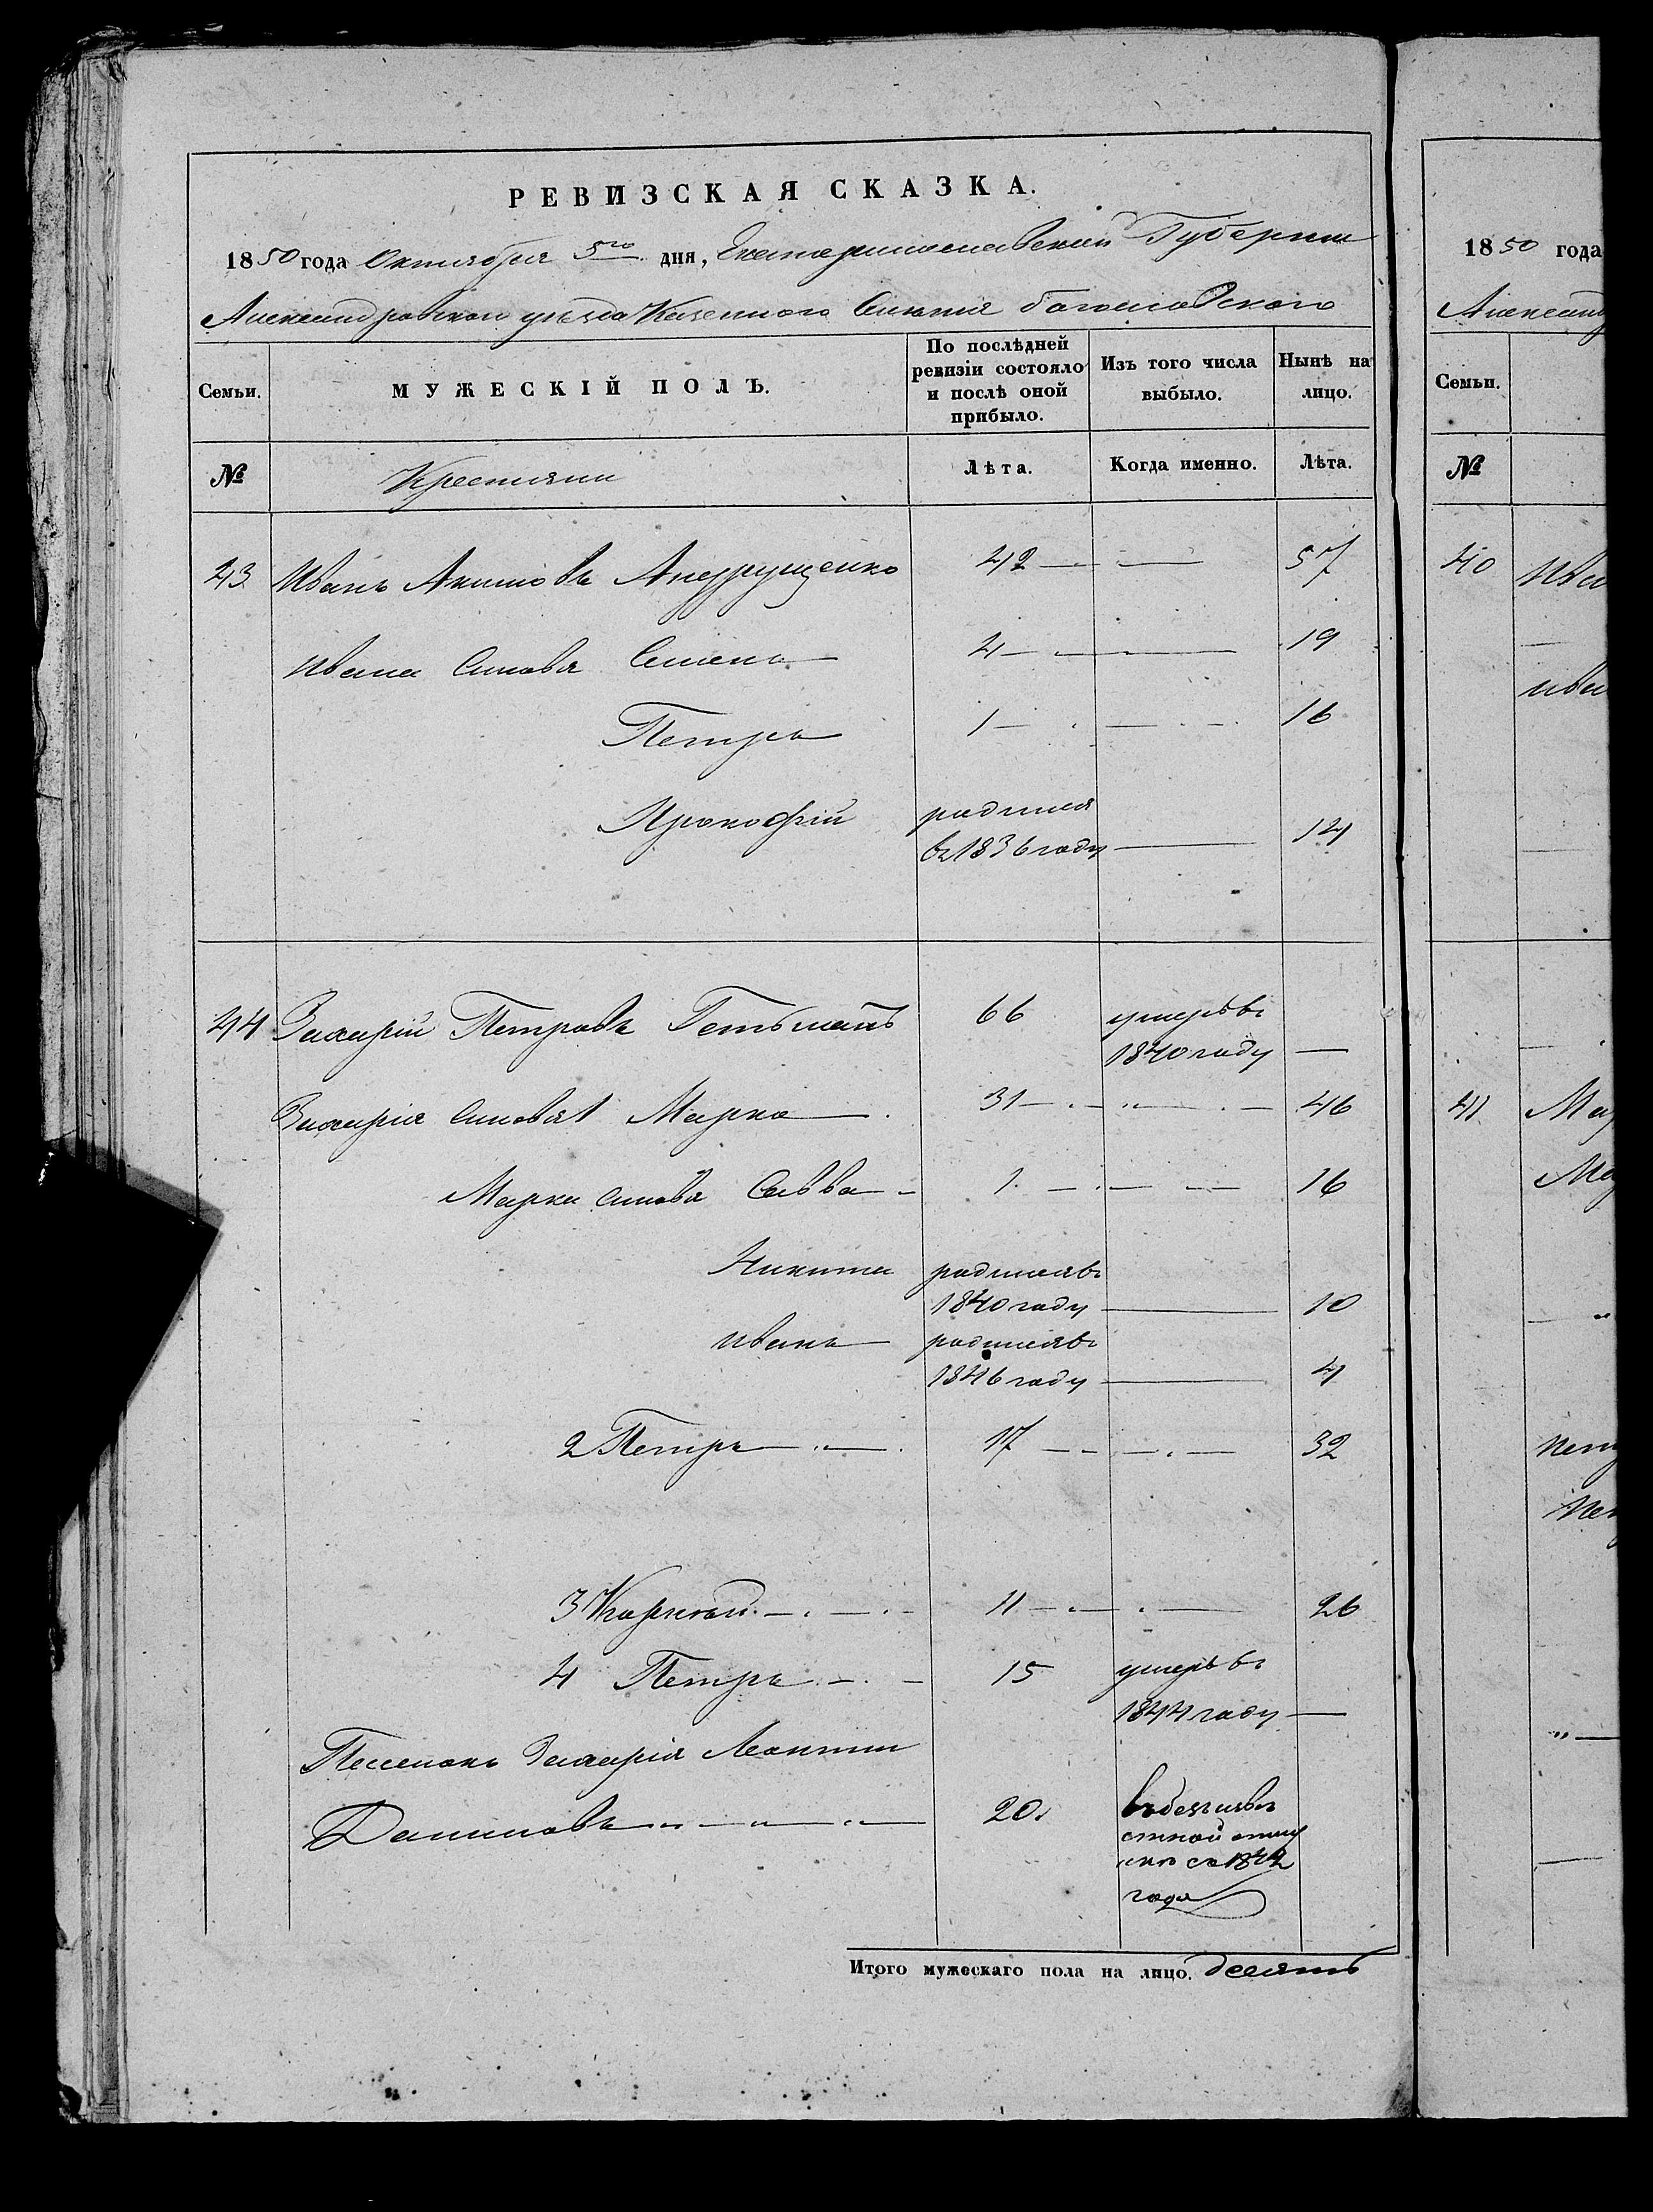 РЕВИЗСКАЯ СКАЗКА.
1850 года Октября 5го дня, Екатеринославской Губернии
Александровского уезда Казенного Селения богословского
Семьи. МУЖЕСКІЙ ПОЛЪ. По послѣдней ревизіи состояло и послѣ оной прибыло. Изъ того числа выбыло. Нынѣ на лицо.
№ Крестияни Лѣта. Когда именно. Лѣта.
43 Иванъ Акимовъ Андрущенко 42 — — 57
Ивана Синовя Семенъ 4 — — 19
Петръ 1 — — 16
Прокофій родился
въ 1836 году — 14
44 Захарій Петровъ Гетьманъ 66 умеръ въ
1840 году —
Захарія Синовя 1 Марко 31 — — 46
Марка Синовя Савва 1 — — 16
Никита родился въ
1840 году — 10
Иванъ родился въ
1846 году — 4
2 Петръ 17 — — 32
3 Корней 11 — — 26
4 Петръ 15 умеръ въ
1844 году —
Пасенокъ Захарія Леонтий
Даниловъ 20 въ безизвѣ
стной отлу
чкѣ съ 1842
года
Итого мужескаго пола на лицо. десять
1850 года
Александ
Семьи.
№
40 Ива
Ива
41 Мар
Мар
Пет
Пет